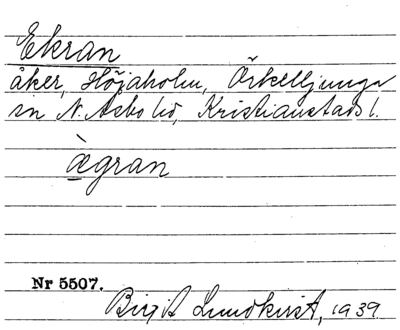 Ekran
åker, Höjaholm, Örkelljunga
sn N. Åsbo hd, Kristianstads l.
ægran
Nr 5507.
Birgit Lundkvist, 1939.